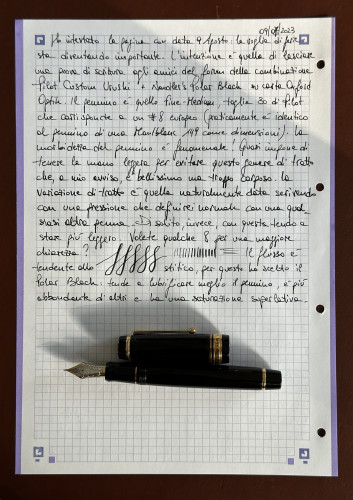 09/08/2023
Ho intestato la pagina con data 9 Agosto: la voglia di ferie
sta diventando importante. L'intenzione è quella di lasciare
una prova di scrittura agli amici del forum della combinazione
Pilot Custom Urushi + Noodler's Polar Black su carta Oxford
Optik. Il pennino è quello Fine-Medium, taglia 30 di Pilot
che corrisponde a un #8 europeo (praticamente è identico
al pennino di una Montblanc 149 come dimensioni). La
morbidezza del pennino è fenomenale! Quasi impone di
tenere la mano leggera per evitare questo genere di tratto
che, a mio avviso, è bellissimo ma troppo corposo. La
variazione di tratto è quella naturalmente data scrivendo
con una pressione che definirei normale con una qual-
siasi altra penna. Di solito, invece, con questa tendo a
stare più leggero. Volete qualche 8 per una maggiore
chiarezza? Il flusso è
tendente allo stitico, per questo ho scelto il
Polar Black: tende a lubrificare meglio il pennino, è più
abbondante d'altri e ha una saturazione superlativa.